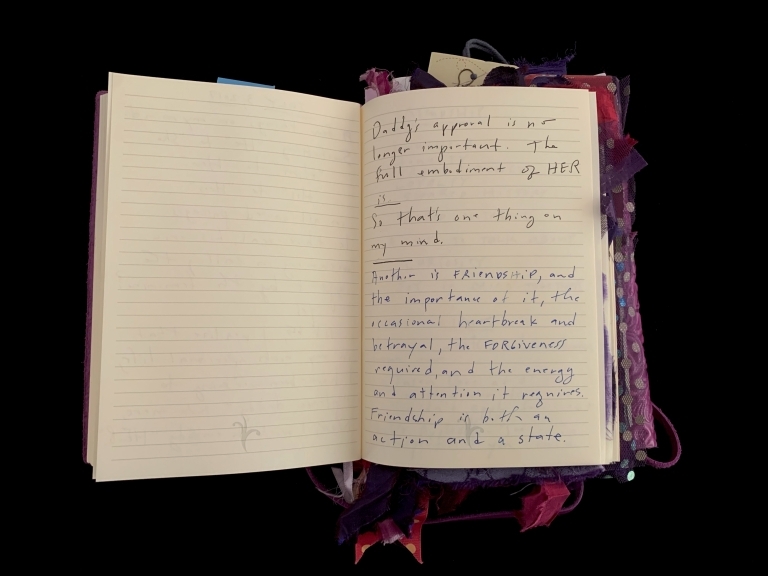 Daddy's approval is no
longer important. The
full embodiment of HER
is
So that's one thing on
my mind.
Another is FRiENDSHiP, and
the importance of it, the
occasional heartbreak and
betrayal, the FORGiveness
required, and the energy
and attention it requires.
Friendship is both an
action and a state.